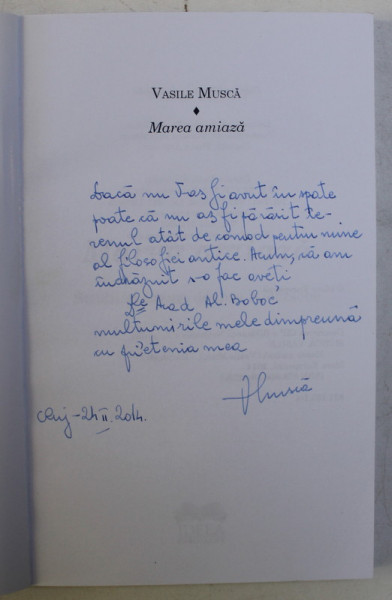 VASILE MUSCĂ
♦
Marea amiază
Dacă nu v-aș fi avut în spate
poate că nu aș fi părăsit te-
renul atât de comod pentru mine
al filosofiei antice. Acum, că am
îndrăznit s-o fac aveți
Dle Acad Al. Boboc
mulțumirile mele dimpreună
cu prietenia mea
VMuscă
Cluj - 24 II. 2014.